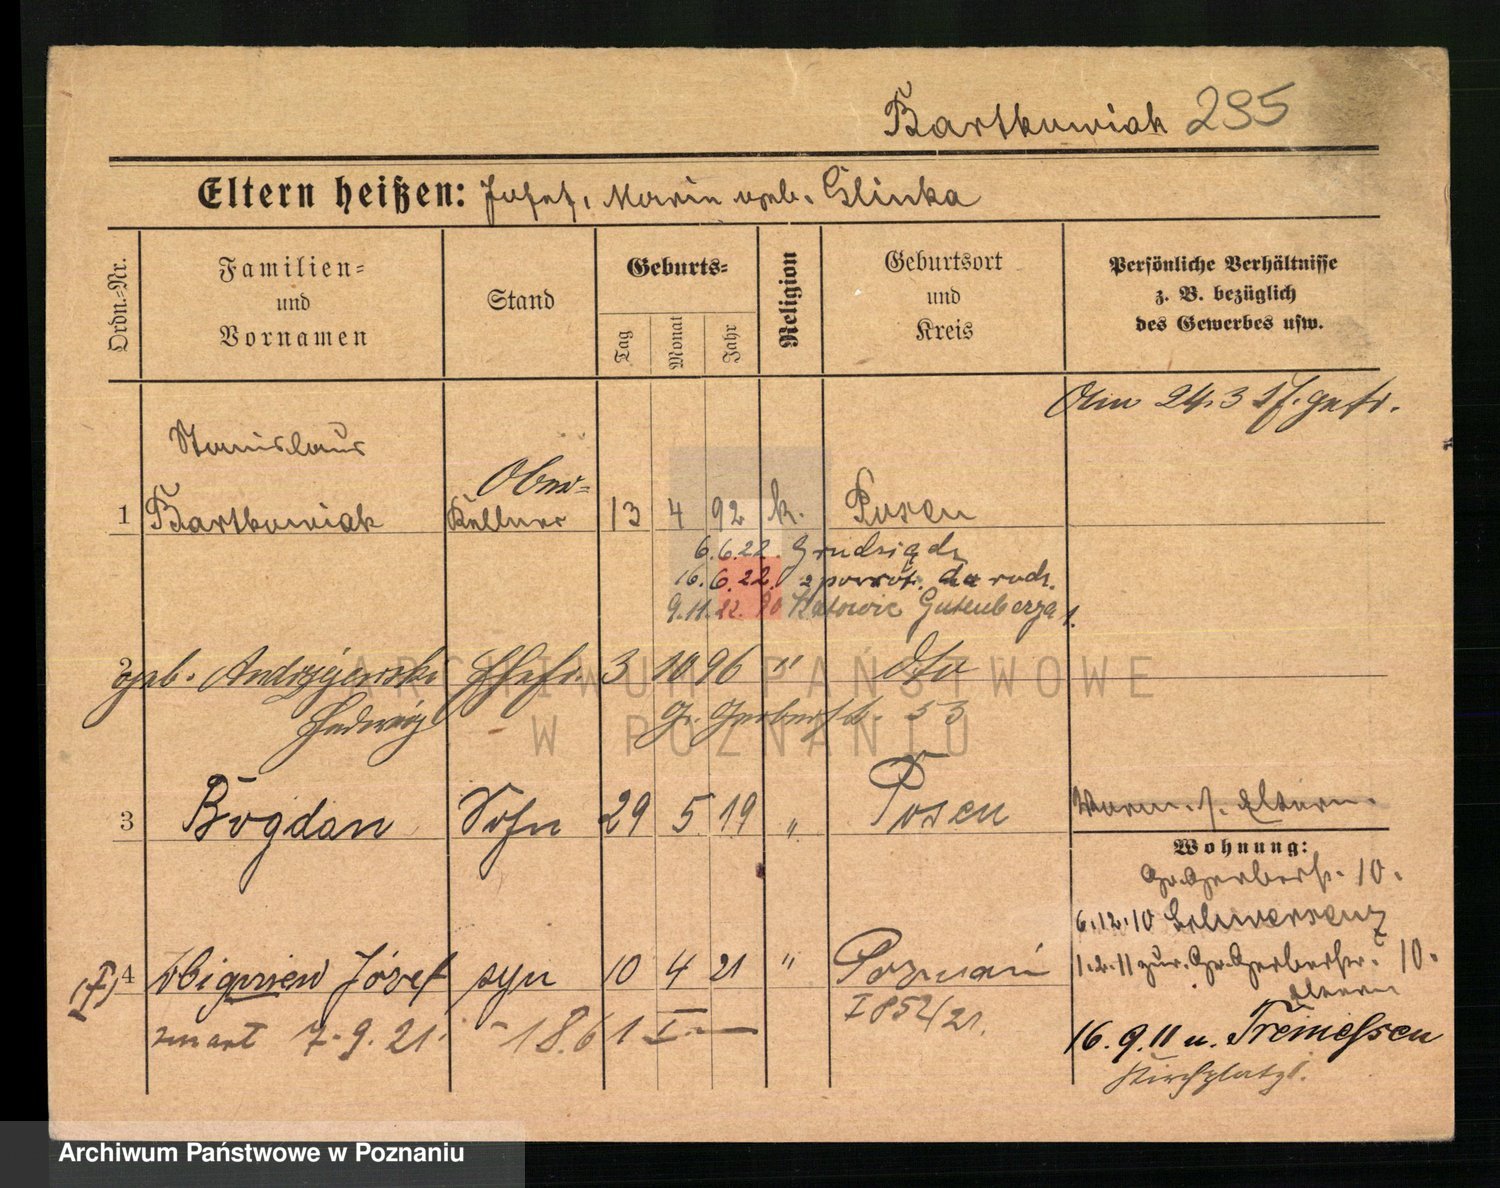 Bartkowiak 295
Eltern heißen: Josef, Marie geb. Glinka
Ordn.=Nr.
Familien=
und
Vornamen
Stand
Geburts=
Tag
Monat
Jahr
Religion
Geburtsort
und
Kreis
Persönliche Verhältnisse
z. B. bezüglich
des Gewerbes usw.
24.3
Stanislaus
Ober=
1 Bartkowiak Kellner 13 4 92 k. Posen
6.6.22. Grudziądz
16.6.22. z powrót. do rodz.
9.11.22. Katowic Gutenberga 1.
2 geb. Andrzejewska Ehefr. 3 10 96 " dto
Hedwig Gr. Gerberstr. 53
3 Bogdan Sohn 29 5 19 " Posen
Eltern.
Wohnung:
Gr. Gerberstr. 10.
6.12.10 Schwersenz
4 Zbigniew Józef syn 10 4 21 " Poznań
1.2.11 zur. Gr. Gerberstr. 10.
Eltern
I 852/21.
zmarł 7.9.21. - 1861 I
16.9.11 n. Tremessen
Kirchplatz 1.
ARCHIWUM PAŃSTWOWE
W POZNANIU
Archiwum Państwowe w Poznaniu